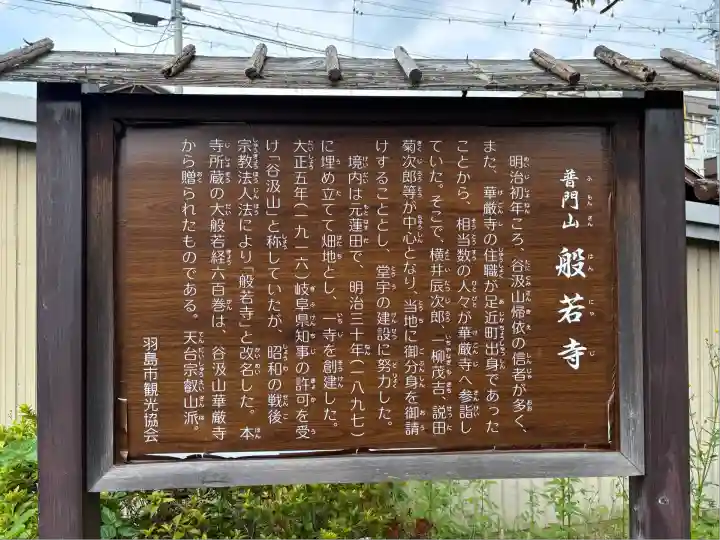 普門山 般若寺
明治初年ころ、谷汲山帰依の信者が多く、
また、華厳寺の住職が足近町出身であった
ことから、相当数の人々が華厳寺へ参詣し
ていた。そこで、横井辰次郎、一柳茂吉、説田
菊次郎等が中心となり、当地に御分身を御請
けすることとし、堂宇の建設に努力した。
境内は元蓮田で、明治三十年(一八九七)
に埋め立てて畑地とし、一寺を創建した。
大正五年(一九一六)岐阜県知事の許可を受
け「谷汲山」と称していたが、昭和の戦後
宗教法人法により「般若寺」と改名した。本
寺所蔵の大般若経六百巻は、谷汲山華厳寺
から贈られたものである。天台宗叡山派。
羽島市観光協会